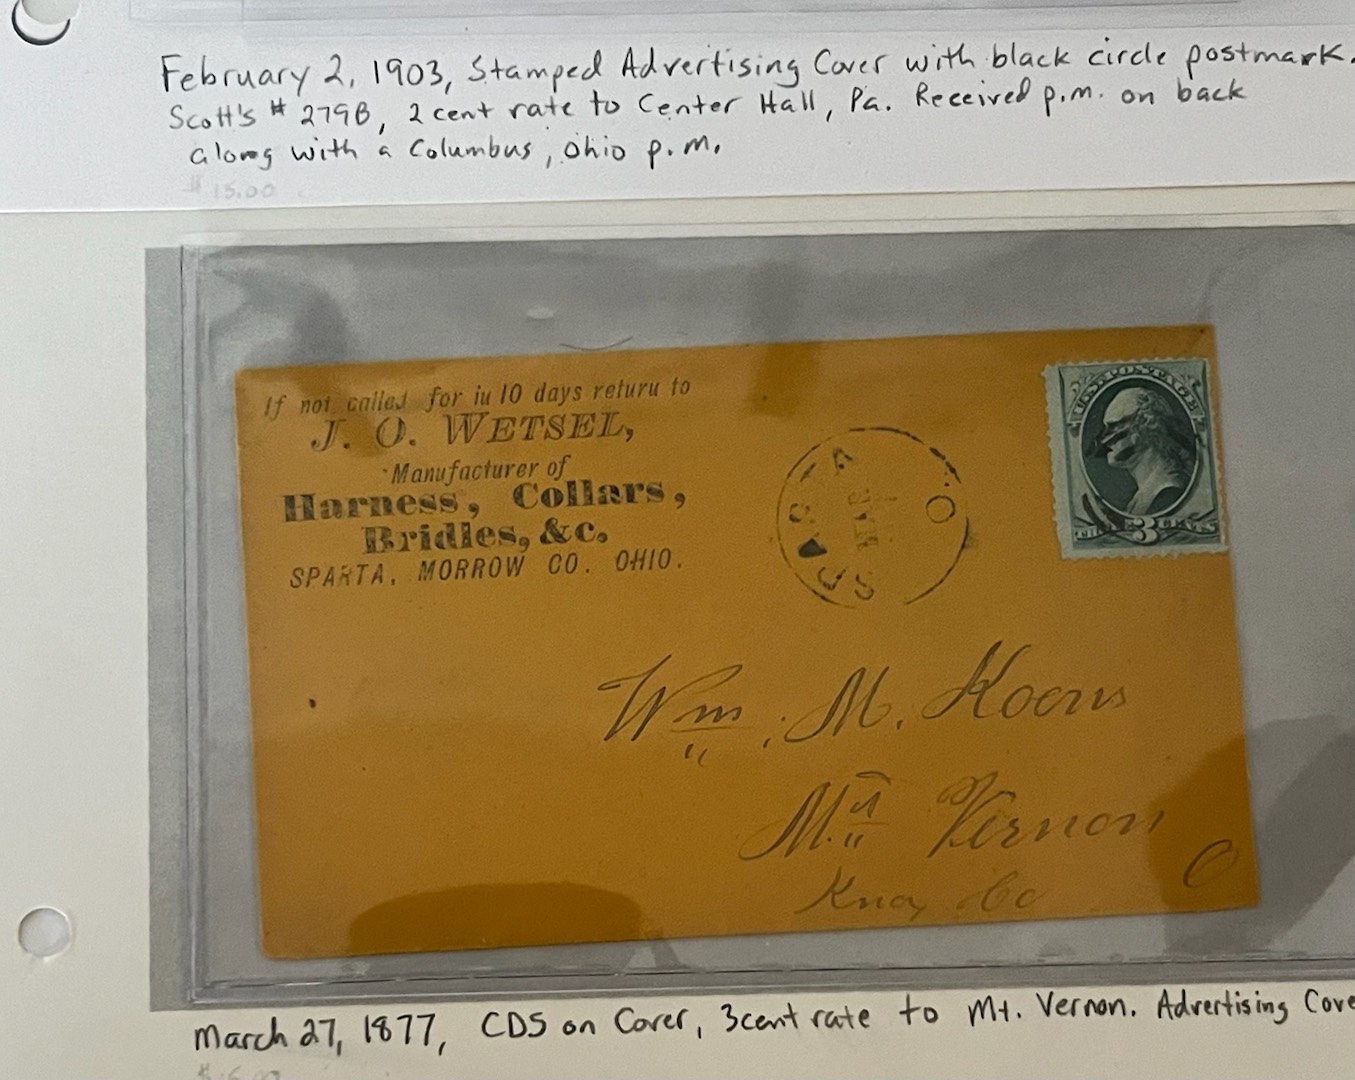 February 2, 1903, Stamped Advertising Cover with black circle postmark.
Scott's # 279B, 2 cent rate to Center Hall, Pa. Received p.m. on back
along with a Columbus, Ohio p.m.
$15.00
If not called for in 10 days return to
J. O. WETSEL,
Manufacturer of
Harness, Collars,
Bridles, &c.
SPARTA, MORROW CO. OHIO.
SPARTA O
U.S. POSTAGE
THREE 3 CENTS
Wm. M. Koons
Mt Vernon
Knox Co O
March 27, 1877, CDS on Cover, 3cent rate to Mt. Vernon. Advertising Cove